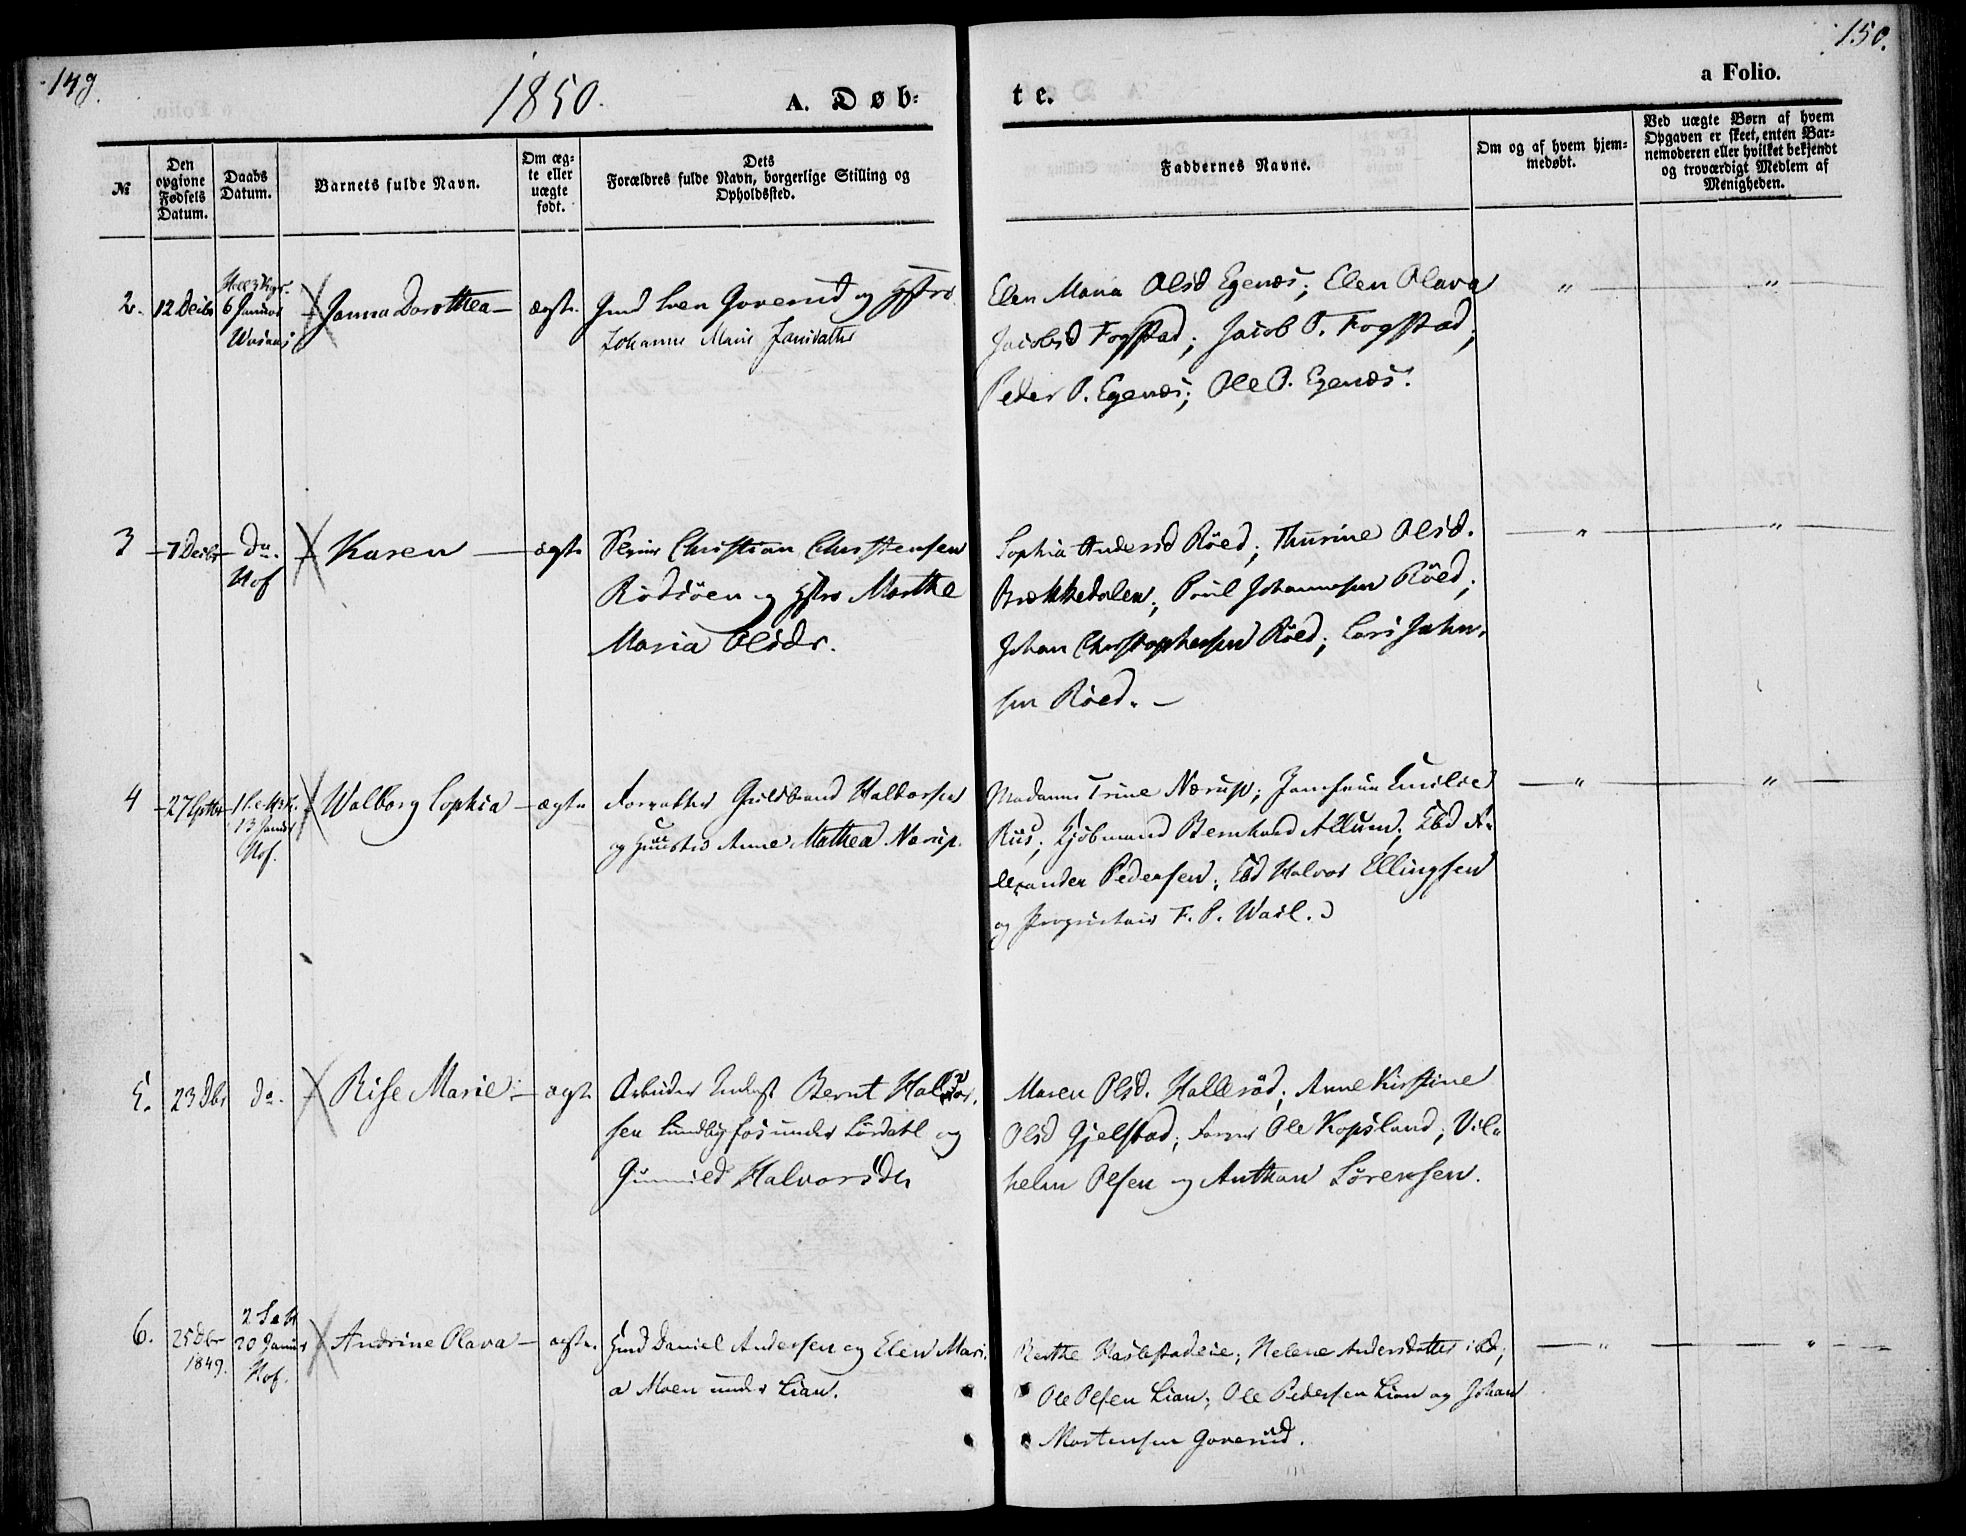 149.
150.
1850.
A. Døb-
te.
a Folio.
№
Den opgivne Fødsels Datum.
Daabs Datum.
Barnets fulde Navn.
Om ægte eller uægte født.
Dets Forældres fulde Navn, borgerlige Stilling og Opholdssted.
Faddernes Navne.
Om og af hvem hjemmedøbt.
Ved uægte Børn af hvem Opgaven er skeet, enten Barnemoderen eller hvilket bekjendt og troværdigt Medlem af Menigheden.
2.
12 Decbr
6 Januar
Janna Dorothea
ægte
Gmd Iver Goverud og Hstro
Johanne Marie Jansdatter
Elen Maria Olsd Egenæs; Elen Olava
Jacobsd Fogstad; Jacob P. Fogstad;
Peder P. Egenæs; Ole P. Egenæs.
"
"
3
7 Decbr
do.
Hof
Karen
ægte
Christian Christensen
Rødsöen og Hstro Marthe
Maria Olsdr.
Sophia Andersd Röed; Thurine Olsd.
Brækkedalen; Poul Johannesen Röed;
Johan Christophersen Röed; Lars Johan-
sen Röed.
"
"
4
27
13 Januar
Hof.
Walborg Sophia
ægte
Forvalter Gulbrand Halvorsen
og Hustro Anne Mathea Nærup.
Madame Trine Nærup; Jomfrue Emilie
Riis; Kjöbmand Bernhard Allum; Ebd A-
lexander Pedersen; Ebd Halvor Ellingsen
og Proprietair F. P. Wail.
"
"
5.
23 Dbr
do.
Rise Marie
ægte
Arbeider Inderst Bernt Halvor-
sen under og
Gunnild Halvorsdr
Maren Olsd. Hallesöd; Anne Kirstine
Olsd Gjelstad; Ole Kopsland; Vil-
helm Olsen og Anthon Sörensen.
6.
25 Dbr
1849.
20 Januar
Hof.
Andrine Olava
ægte.
Hmd Daniel Andersen og Elen Mari-
a Moen under Lian.
Berthe Haslestadeie; Helene Andersdatter ibd;
Ole Olsen Lian; Ole Pedersen Lian og Johan
Mortensen Goverud.
"
"